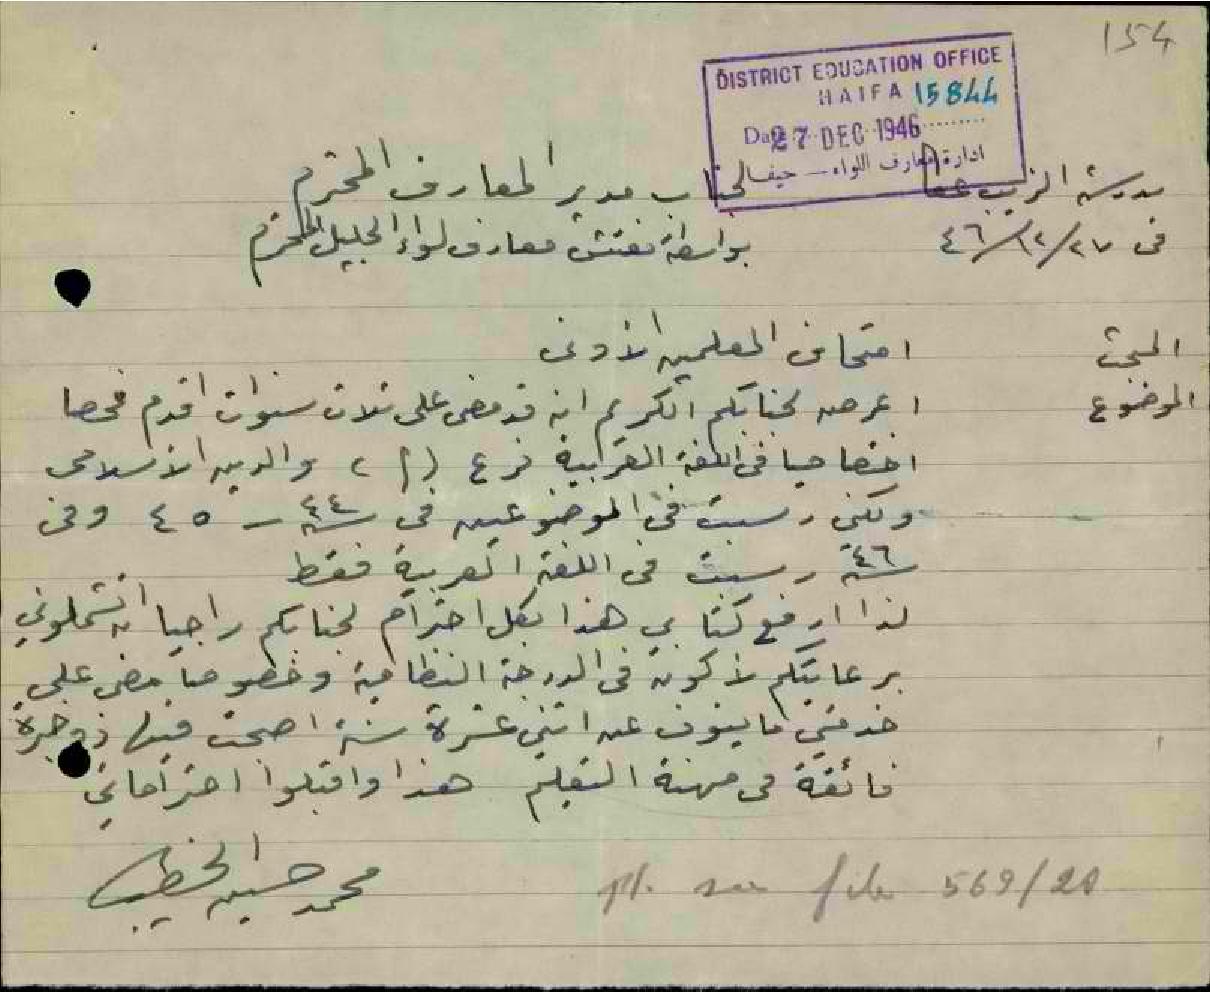 154
DISTRICT EDUCATION OFFICE
HAIFA 15844
Da 27 DEC 1946
ادارة معارف اللواء - حيفا
مدرسة الزيب عكا
في ٢٧/١٢/٤٦
لجناب مدير المعارف المحترم
بواسطة مفتش معارف لواء الجليل المحترم
المبحث امتحان المعلمين الأدنى
الموضوع اعرض لجنابكم الكريم انه قد مضى علي ثلاث سنوات اقدم فحصا
اختصاصيا في اللغة العربية فرع (أ) ، والدين الاسلامي
ولكني رسبت في الموضوعين في سنة ٤٤ - ٤٥ وفي
سنة ٤٦ رسبت في اللغة العربية فقط
لذا ارفع كتابي هذا بكل احترام لجنابكم راجيا ان تشملوني
برعايتكم لأكون في الدرجة النظامية وخصوصا مضى علي
خدمتي ما ينوف عن اثنتي عشرة سنة اصبحت فيها ذو خبرة
فائقة في مهنة التعليم هذا واقبلوا احتراماتي
محمد حسين الخطيب
pl. see file 569/20